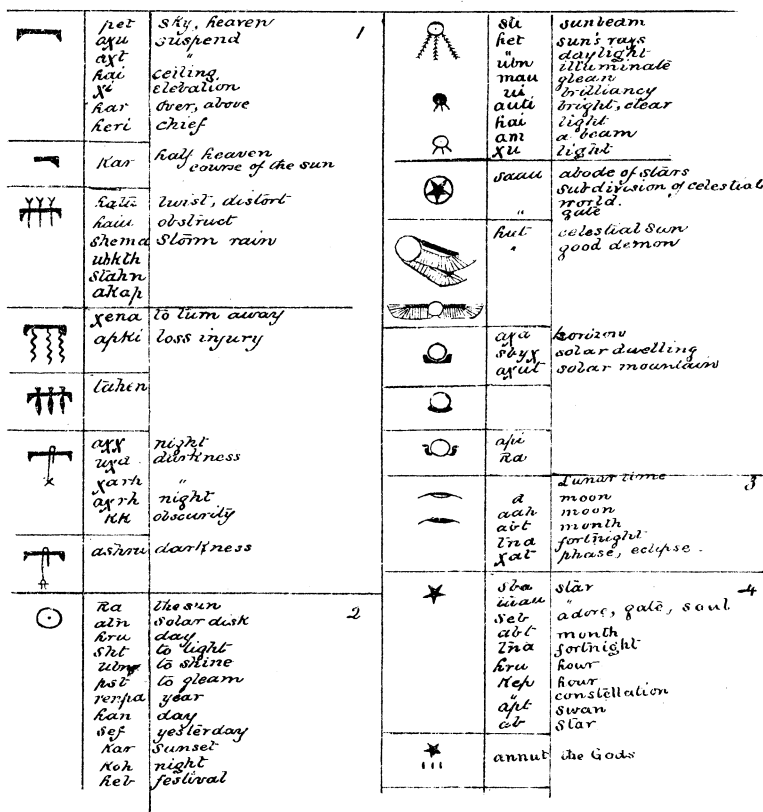 pet sky, heaven 1
axu suspend
axt "
hai ceiling
xi elevation
har over, above
heri chief
Kar half heaven
course of the sun
hatu twist, distort
haiu obstruct
shema storm rain
ubkth
stahn
akap
xena to turn away
apki loss injury
tahen
axx night
uxa darkness
xarh "
axrh night
KK obscurity
ashru darkness
Ra the sun 2
atn solar disk
hru day
sht to light
ubn to shine
pst to gleam
renpa year
han day
sef yesterday
Kar sunset
Koh night
heb festival
stu sunbeam
het sun's rays
" daylight
ubn illuminate
mau glean
ui brilliancy
auti bright, clear
hai light
am a beam
xu light
saau abode of stars
subdivision of celestial
world.
" gate
hut celestial sun
" good demon
axa horizon
sbyx solar dwelling
axut solar mountain
api
Ra
Lunar time 3
a moon
aah moon
abt month
tna fortnight
xat phase, eclipse.
sba star 4
"
seb adore, gate, soul
abt month
tna fortnight
hru hour
Kep hour
" constellation
apt swan
ab star
annut the Gods